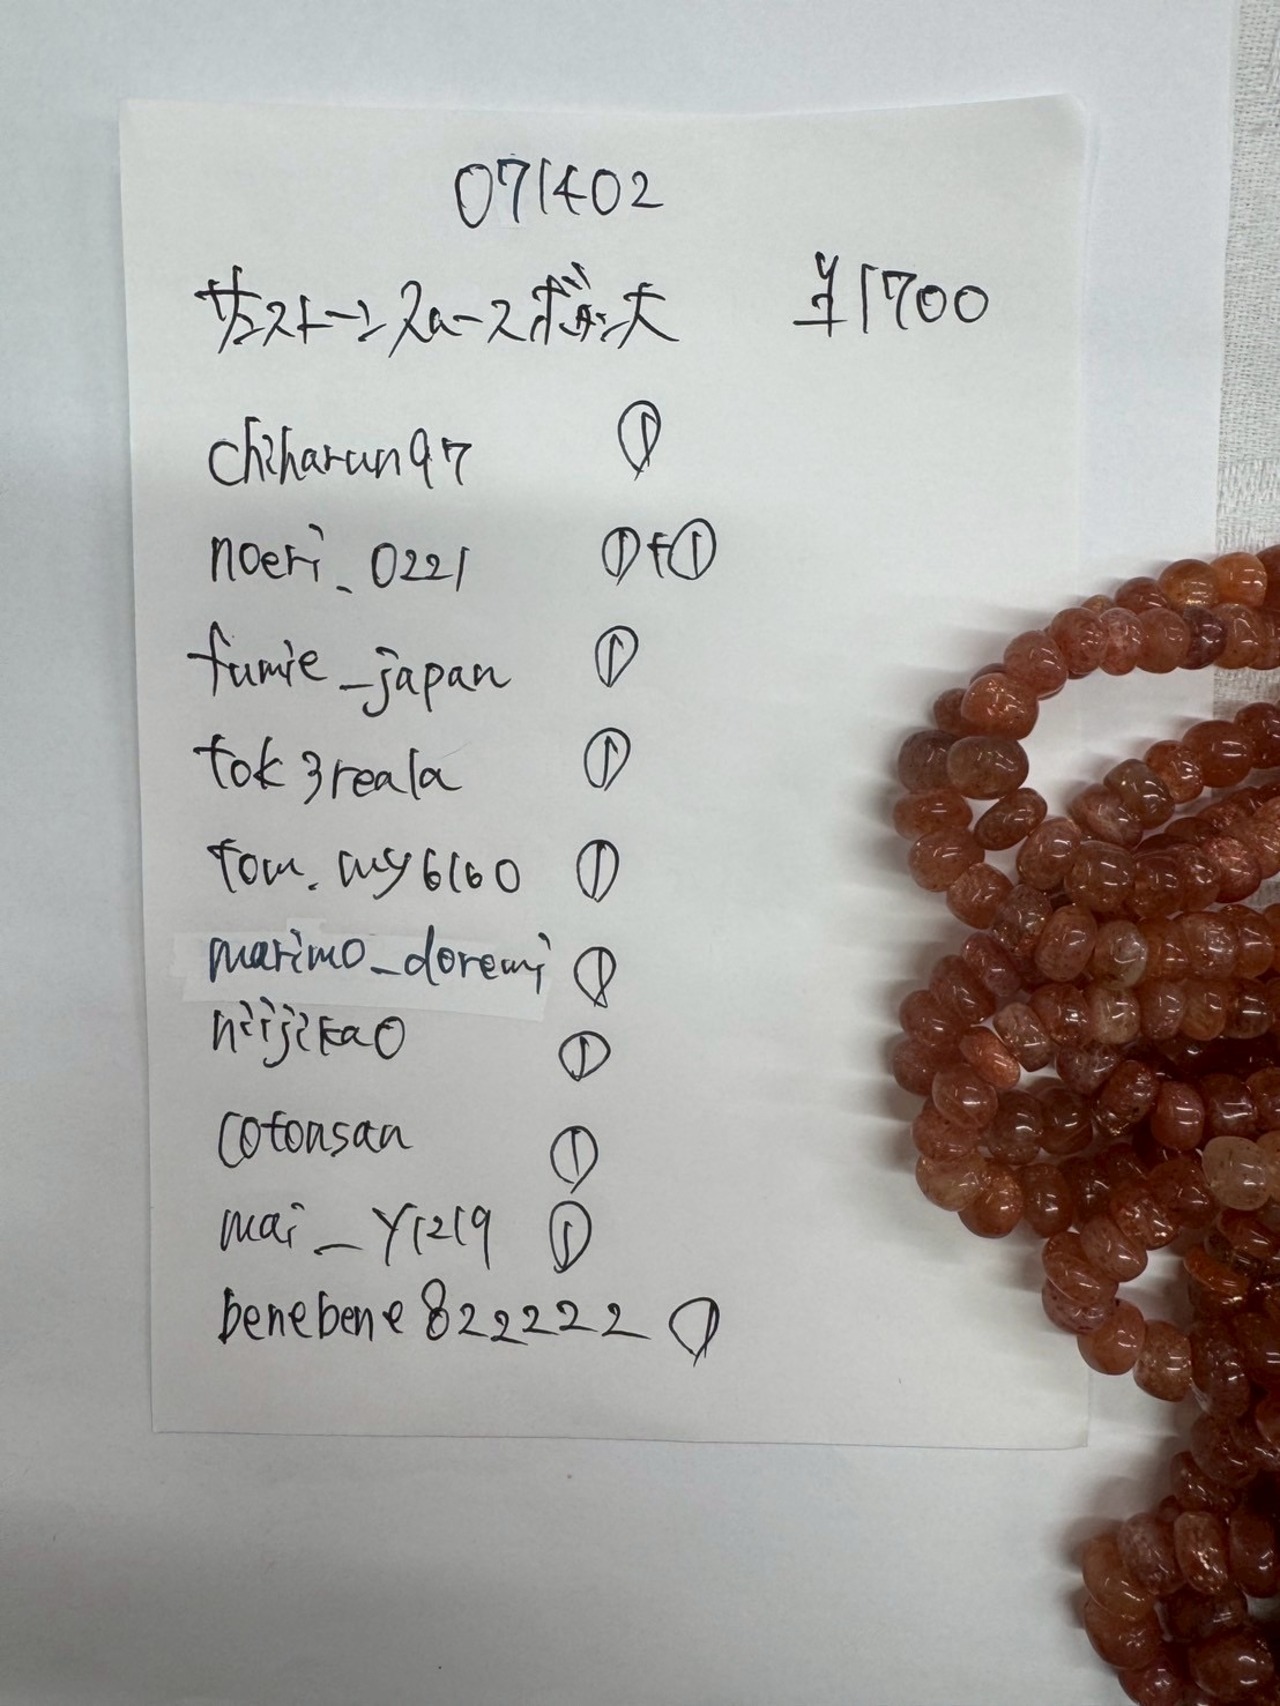 071402
サンストーンスムースボタン大 ¥1700
chiharun97 ①
noeri_0221 ①+①
fumie_japan ①
tok3reala ①
tom.my6160 ①
marimo_doremi ①
niijikao ①
cotonsan ①
mai_y1219 ①
benebene822222 ①